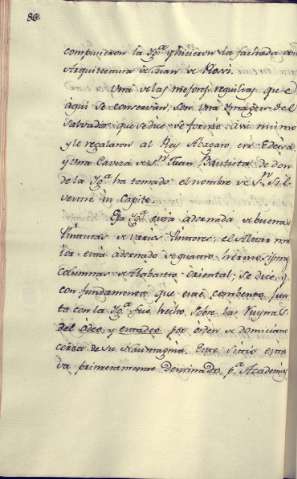 86
compusieron la Ygª. y hicieron la fachada con
Arquitectura de Juan de Rossi.
Una de las mejores reliquias que
aqui se conservan son una Ymagen del
Salvador, que se dice se formó asi mismo
y le regalaron al Rey Abagaro en Edesa,
y otra Caveza de Sⁿ. Juan Bautista de don
de la Ygª. ha tomado el nombre de Sⁿ. Sil
vestre in Capite.
Esta Ygª. está adornada de buenas
Pinturas de varios Autores; el Altar ma
columnas de Alabastro Oriental; Se dice, y
con fundamento que este combento jun
ta con la Ygª. fué hecho sobre las Ruynas
del Odeo, y por orden de Domiciano
cerca de su Naumaquia. Este sitio esta
va primeramente destinado pª. Academias